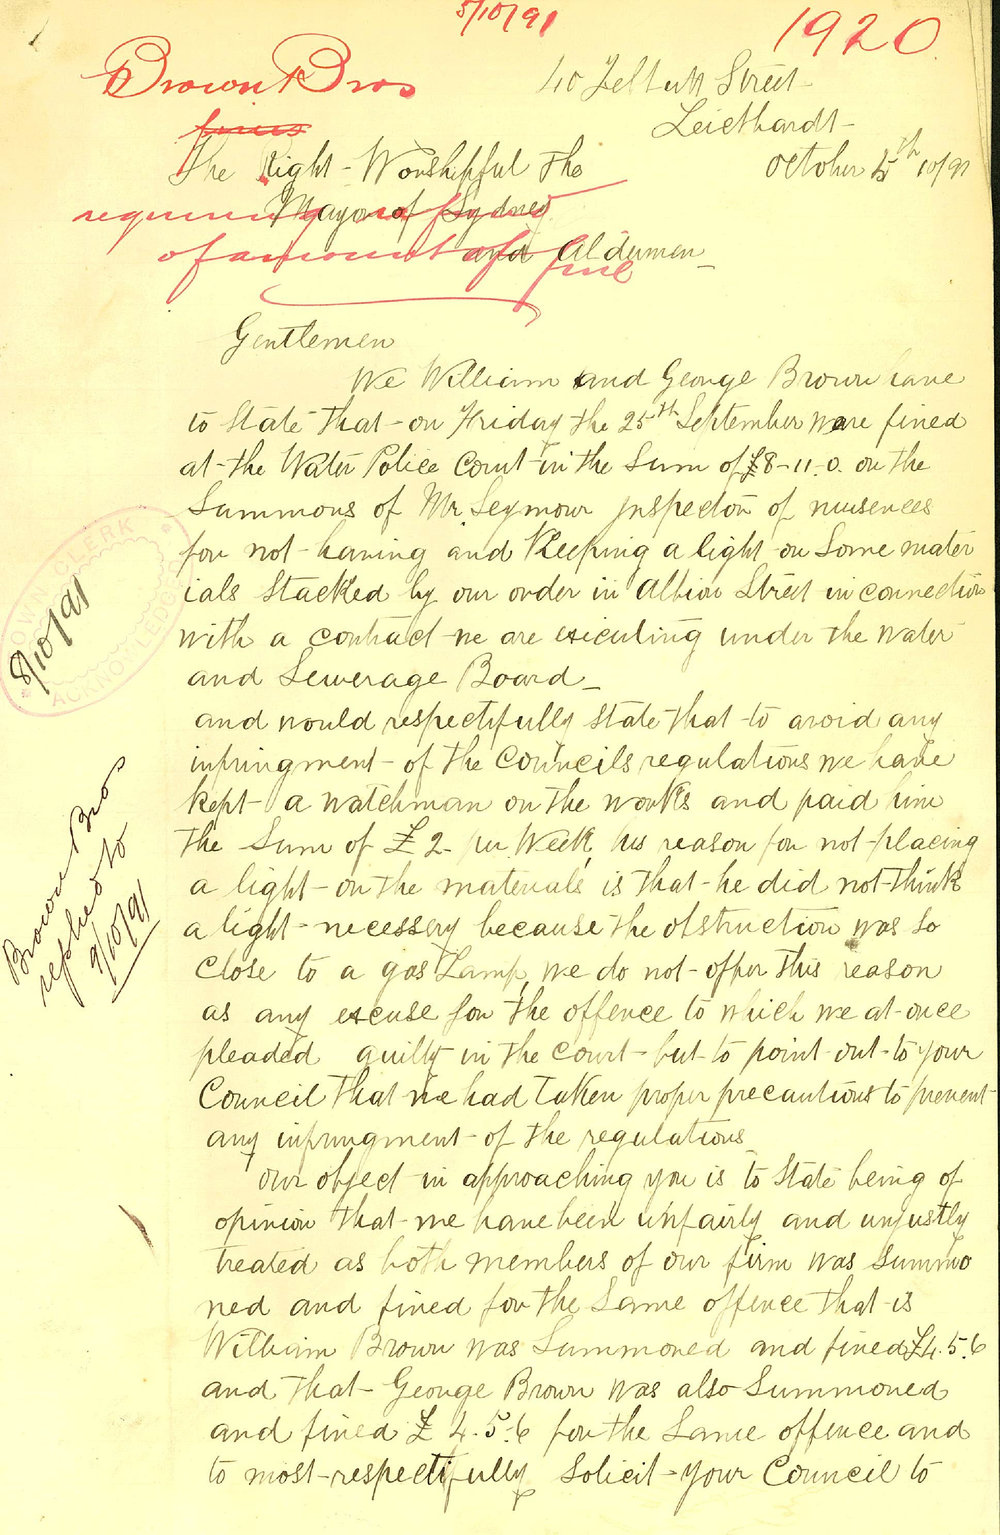 5/10/91
1920
Brown Bros
fines
requiring refund
of amount of fine
40 Street
Leichhardt
October 5th 10/91
The Right Worshipful The
Mayor of Sydney
and Aldermen
Gentlemen
We William and George Brown have
to State that on Friday the 25th September were fined
at the Water Police Court in the Sum of £8-11.0. on the
Summons of Mr. Seymour Inspector of nuisences
for not having and Keeping a light on Some mater
ials Stacked by our order in Albion Street in connection
with a contract we are exicuting under the water
and Sewerage Board
and would respectifully state that to avoid any
infringment of the Councils regulations we have
kept a watchman on the works and paid him
the Sum of £2 per Week, his reason for not placing
a light on the materials is that he did not think
a light necessery because the obstruction was so
close to a gas Lamp, we do not offer this reason
as any excuse for the offence to which we at once
pleaded guilty in the Court but to point out to your
Council that we had taken proper precautions to prevent
any infringment of the regulations
Our object in approaching you is to State being of
opinion that we have been unfairly and unjustly
treated as both members of our firm was Summo
ned and fined for the Same offence that is
William Brown was Summoned and fined £4.5.6
and that George Brown was also Summoned
and fined £4.5.6 for the Same offence and
to most respectifully Solicit your Council to
TOWN CLERK
8/10/91
ACKNOWLEDGED
Brown Bros
replied to
9/10/91